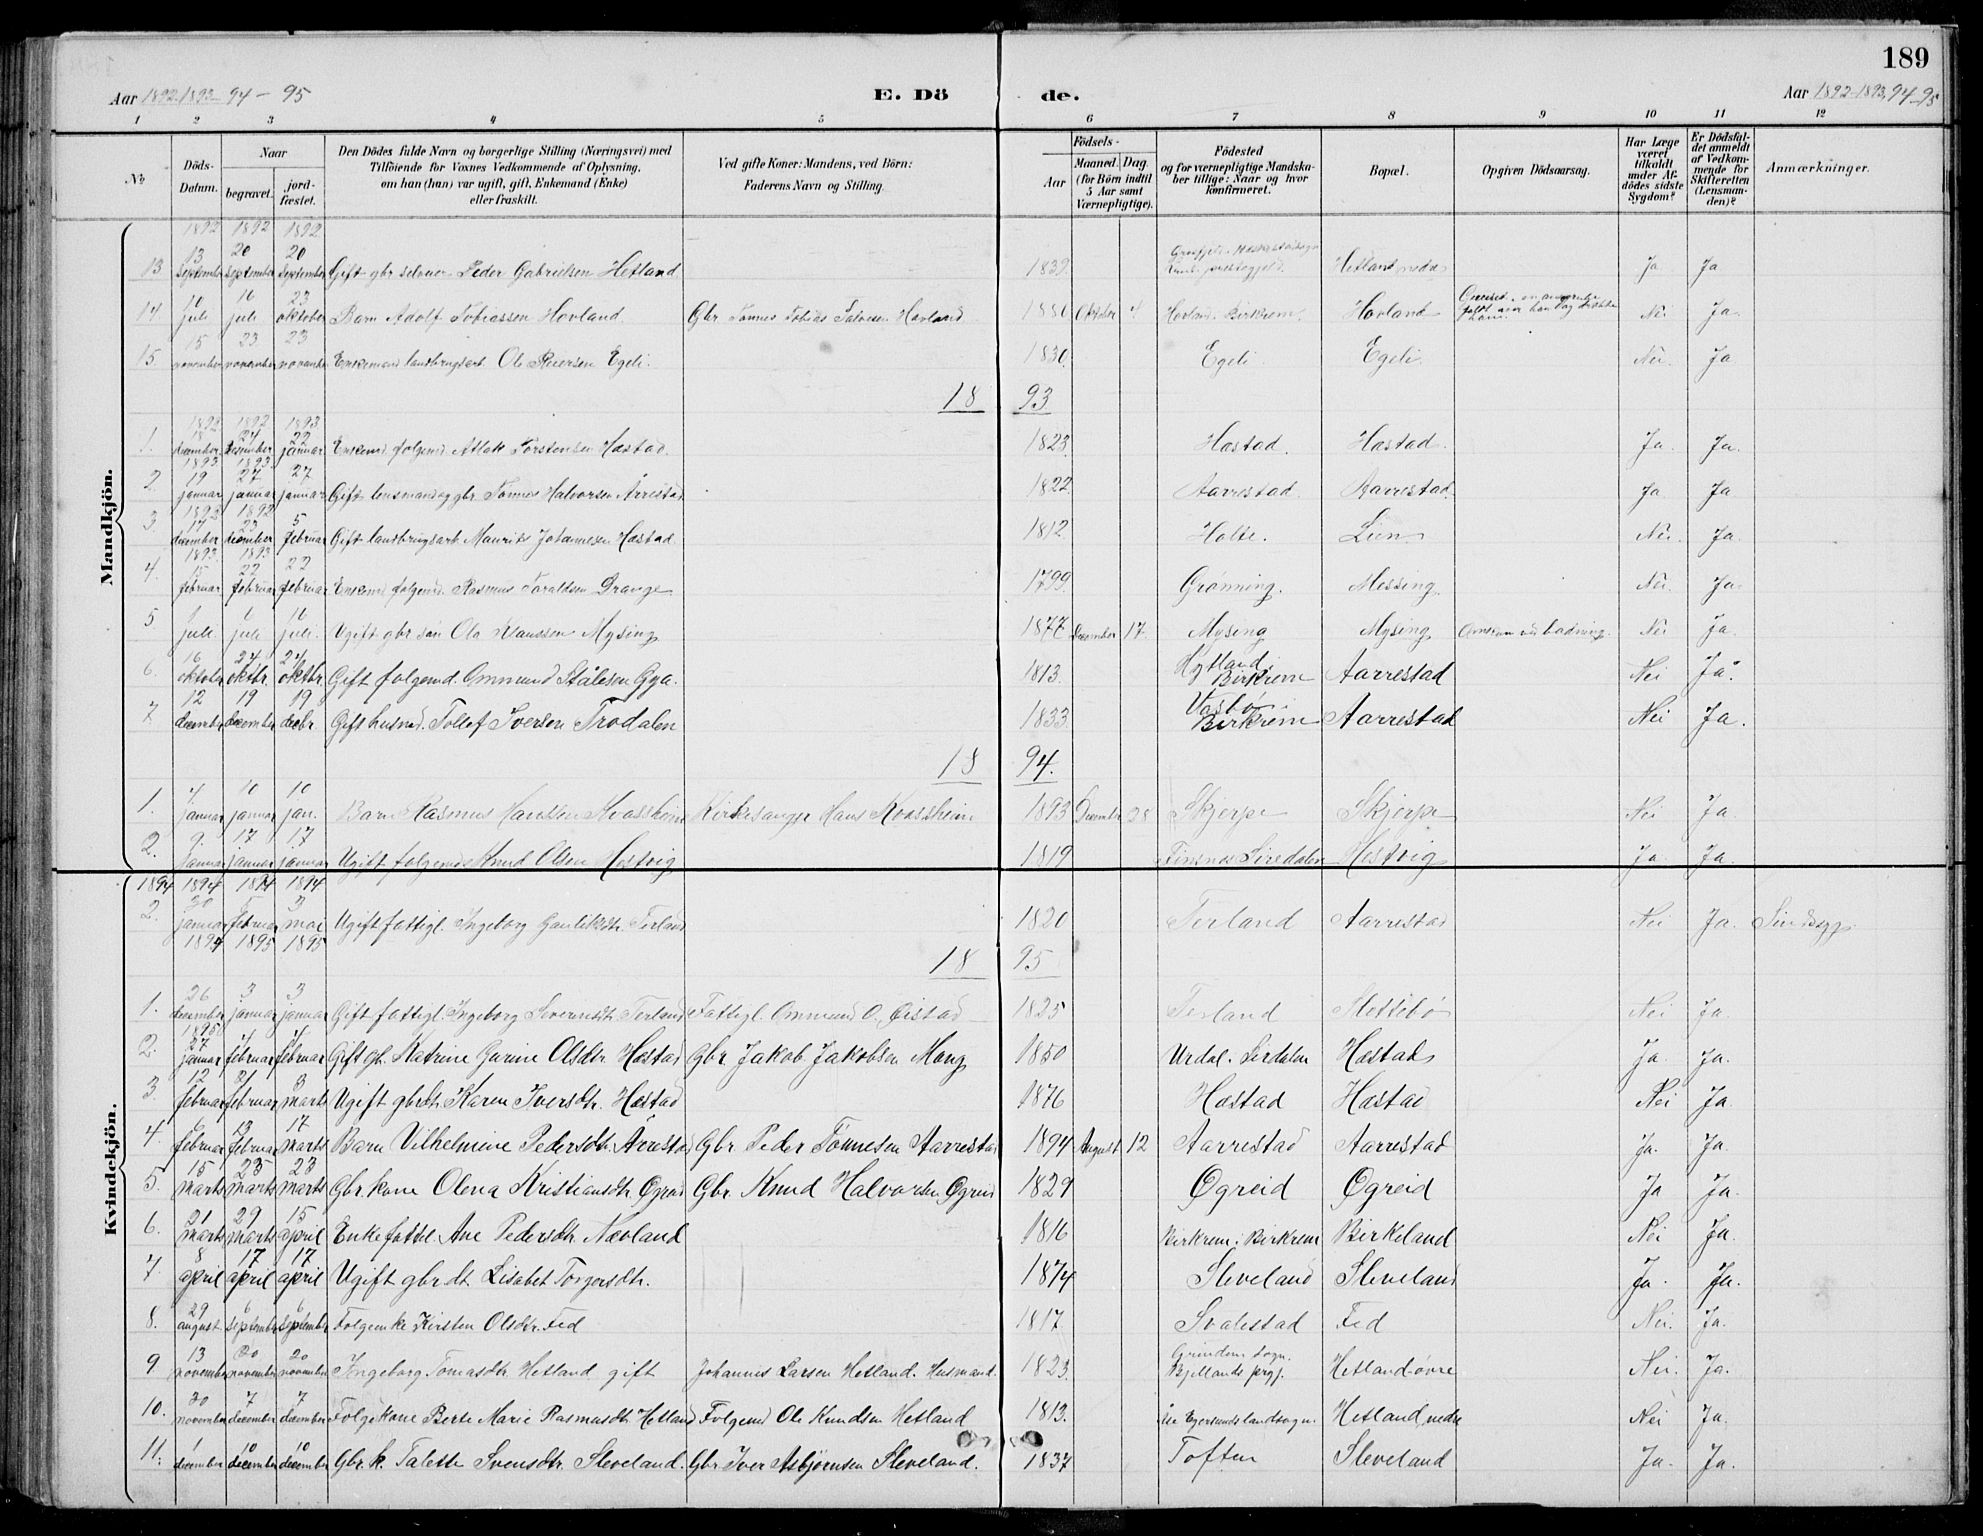 189
Aar 1892. 1893 - 94 - 95
E. Dö de.
Aar 1892 - 1893. 94 - 95
1 2 3 4 5 6 7 8 9 10 11 12
No
Döds-Datum.
Naar
begravet.
jordfæstet.
Den Dödes fulde Navn og borgerlige Stilling (Næringsvei) med Tilföiende for Voxnes Vedkommende af Oplysning, om han (hun) var ugift, gift, Enkemand (Enke) eller fraskilt.
Ved gifte Koner: Mandens, ved Börn: Faderens Navn og Stilling.
Födsels-
Aar
Maaned. Dag.
(for Börn indtil 5 Aar samt Værnepligtige).
Födested og for værnepligtige Mandskaber tillige: Naar og hvor konfirmeret.
Bopæl.
Opgiven Dödsaarsag.
Har Læge været tilkaldt under Afdödes sidste Sygdom?
Er Dödsfaldet anmeldt af Vedkommende for Skifteretten (Lensmanden)?
Anmærkninger.
Mandkjön.
1892 1892 1892
13 13 september 20 september 20 september Gift gbr selveier Peder Gabrielsen Hetland 1839 Hetland nedre Ja Ja
14. 10 juli 16 juli 23 oktober Barn Adolf Tobiassen Hovland Gbr Tønnes Tobias Salvesen Hovland 1880 Oktober 4 Hovland. Birkrem. Hovland Nei Ja
15. 15 november 23 november 23 november Enkemand landbrugsarb. Ole Reiersen Egeli. 1830. Egeli Egeli. Nei. Ja
18 93
1. 1892 18 december 1892 24 december 1893 22 januar Enkemd. folgemd. Atlak Torstensen Hæstad. 1823. Hæstad. Hæstad. Ja. Ja.
2. 1893 19 januar 1893 27 januar 27 januar Gift lensmand og gbr. Tønnes Halvorsen Årrestad 1822 Aarrestad. Aarrestad. Ja Ja
3 1892 17 december 1892 23 december 5 februar Gift landbrugsarb. Maurits Johannesen Hæstad. 1812. Holte. Lien. Nei. Ja.
4. 1893. 15 februar 1893. 22 februar 22 februar Enkemd. folgemd. Rasmus Toraldsen Drange 1799. Grønning. Messing. Nei. Ja.
5 juli juli juli. Ugift gbr. søn Ole Klaussen Mysing 1877 December 17. Mysing Mysing Omkom ved badning. Nei Ja.
6. 16 oktober 24 oktbr. 24 oktbr. Gift folgemd. Ommund Stålesen Gya. 1813. Birkrem Aarrestad Nei Ja.
7. 12 december 19 december 19 decbr. Gift husmd. Tollef Iversen Trodalen 1833 Vasbø Birkrem Aarrestad Nei Ja.
18 94.
1. 4 januar 10 januar 10 jan. Barn Rasmus Hanssen Kvassheim Kirkesanger Hans Kvassheim 1893 December 28 Skjerpe Skjerpe Nei Ja.
2. 9. januar 17 januar 17 januar Ugift folgemd. Knud Olsen Hestvig 1819 Finsnes Siredalen Hestvig Ja. Ja.
Kvindekjön.
1894 1894 1894 1894
2. 30 januar 5 februar 3 mai Ugift fattigl. Ingeborg Gautiksdtr. Terland 1820 Terland Aarrestad Nei Ja. Sindssyg.
1894 1895 1895
18 95
1. 26 december 3 januar 3 januar Gift fattigl. Ingeborg Severinsdtr. Terland Fattigl. Ommund O. Øistad 1825 Terland Slettebø Nei Ja.
2. 1895 27 januar 4 februar 4 februar Gift gb. Katrine Gurine Olsdtr. Hæstad Gbr Jakob Jakobsen Mong 1850 Urdal. Sirdalen Hæstad Ja. Ja.
3. 12 februar 21 februar 3 marts Ugift gbrdtr. Karen Iversdtr. Hæstad 1876 Hæstad Hæstad Nei Ja.
4. 6 februar 13 februar 17 marts Barn Vilhelmine Pedersdtr. Årrestad Gbr Peder Tønnesen Aarrestad 1894 August 12 Aarrestad Aarrestad Ja. Ja.
5. 15 marts 23 marts 23 marts Gbr. kone Olena Kristiansdtr. Øgreid Gbr. Knud Halvorsen Øgreid 1829 Øgreid Øgreid Ja Ja.
6. 21 marts 29 marts 15 april Enke fattl. Ane Pedersdtr. Nævland 1816 Birkrem i Birkrem Birkeland Nei Ja.
7. 8 april 17 april 17 april Ugift gbr. dt Lisabet Torgersdtr. 1874 Sleveland Sleveland Ja. Ja.
8. 29 august 6 september 6 september Folgeenke Kirsten Olsdtr. Fed 1817 Svalestad Fed Nei. Ja.
9 13 november 20 november 20 november Ingeborg Tomasdtr Hetland gift Johannes Larsen Hetland. Husmand. 1823. Grindem sogn. Bjellands prgj. Hetland øvre Nei. Ja.
10. 30 november 7 december 7 december Folgekone Berte Marie Rasmusdtr Hetland Folgemd Ole Knudsen Hetland 1813. Egersunds landsogn. Hetland nedre Nei Ja.
11. 1 december 10 december 10 december Gbr. k. Talette Svensdtr. Sleveland. Gbr Iver Asbjørnsen Sleveland. 1837 Toften Sleveland Ja. Ja.